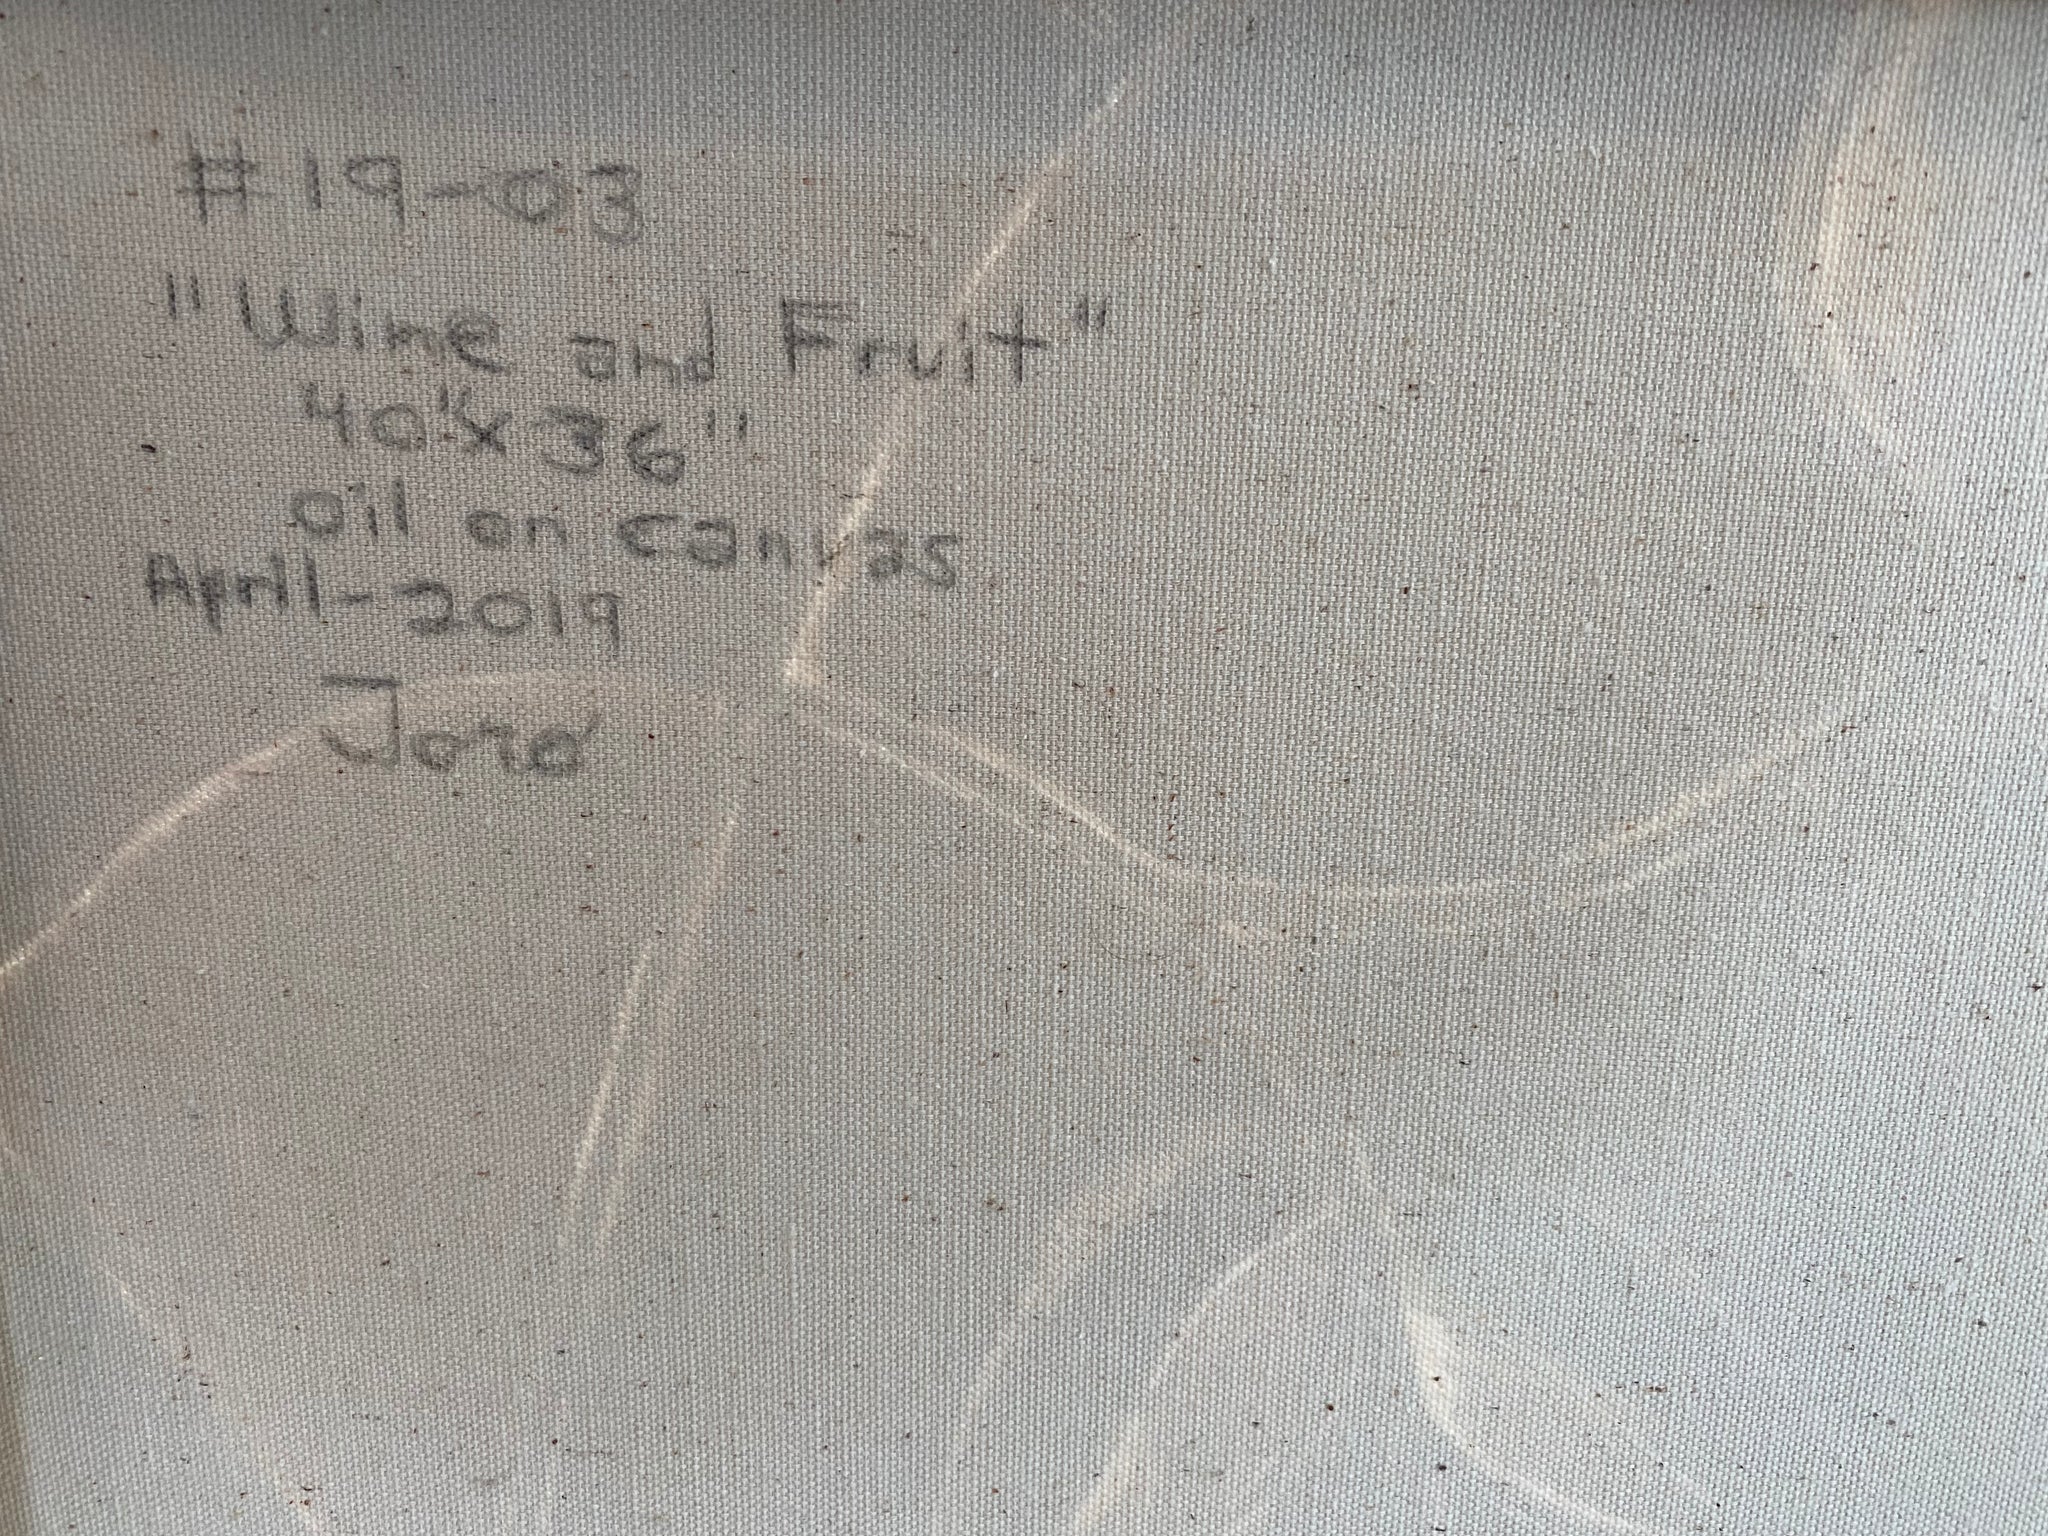 #19-03
"Wine and Fruit"
40"x36"
oil on canvas
April-2019
Joro